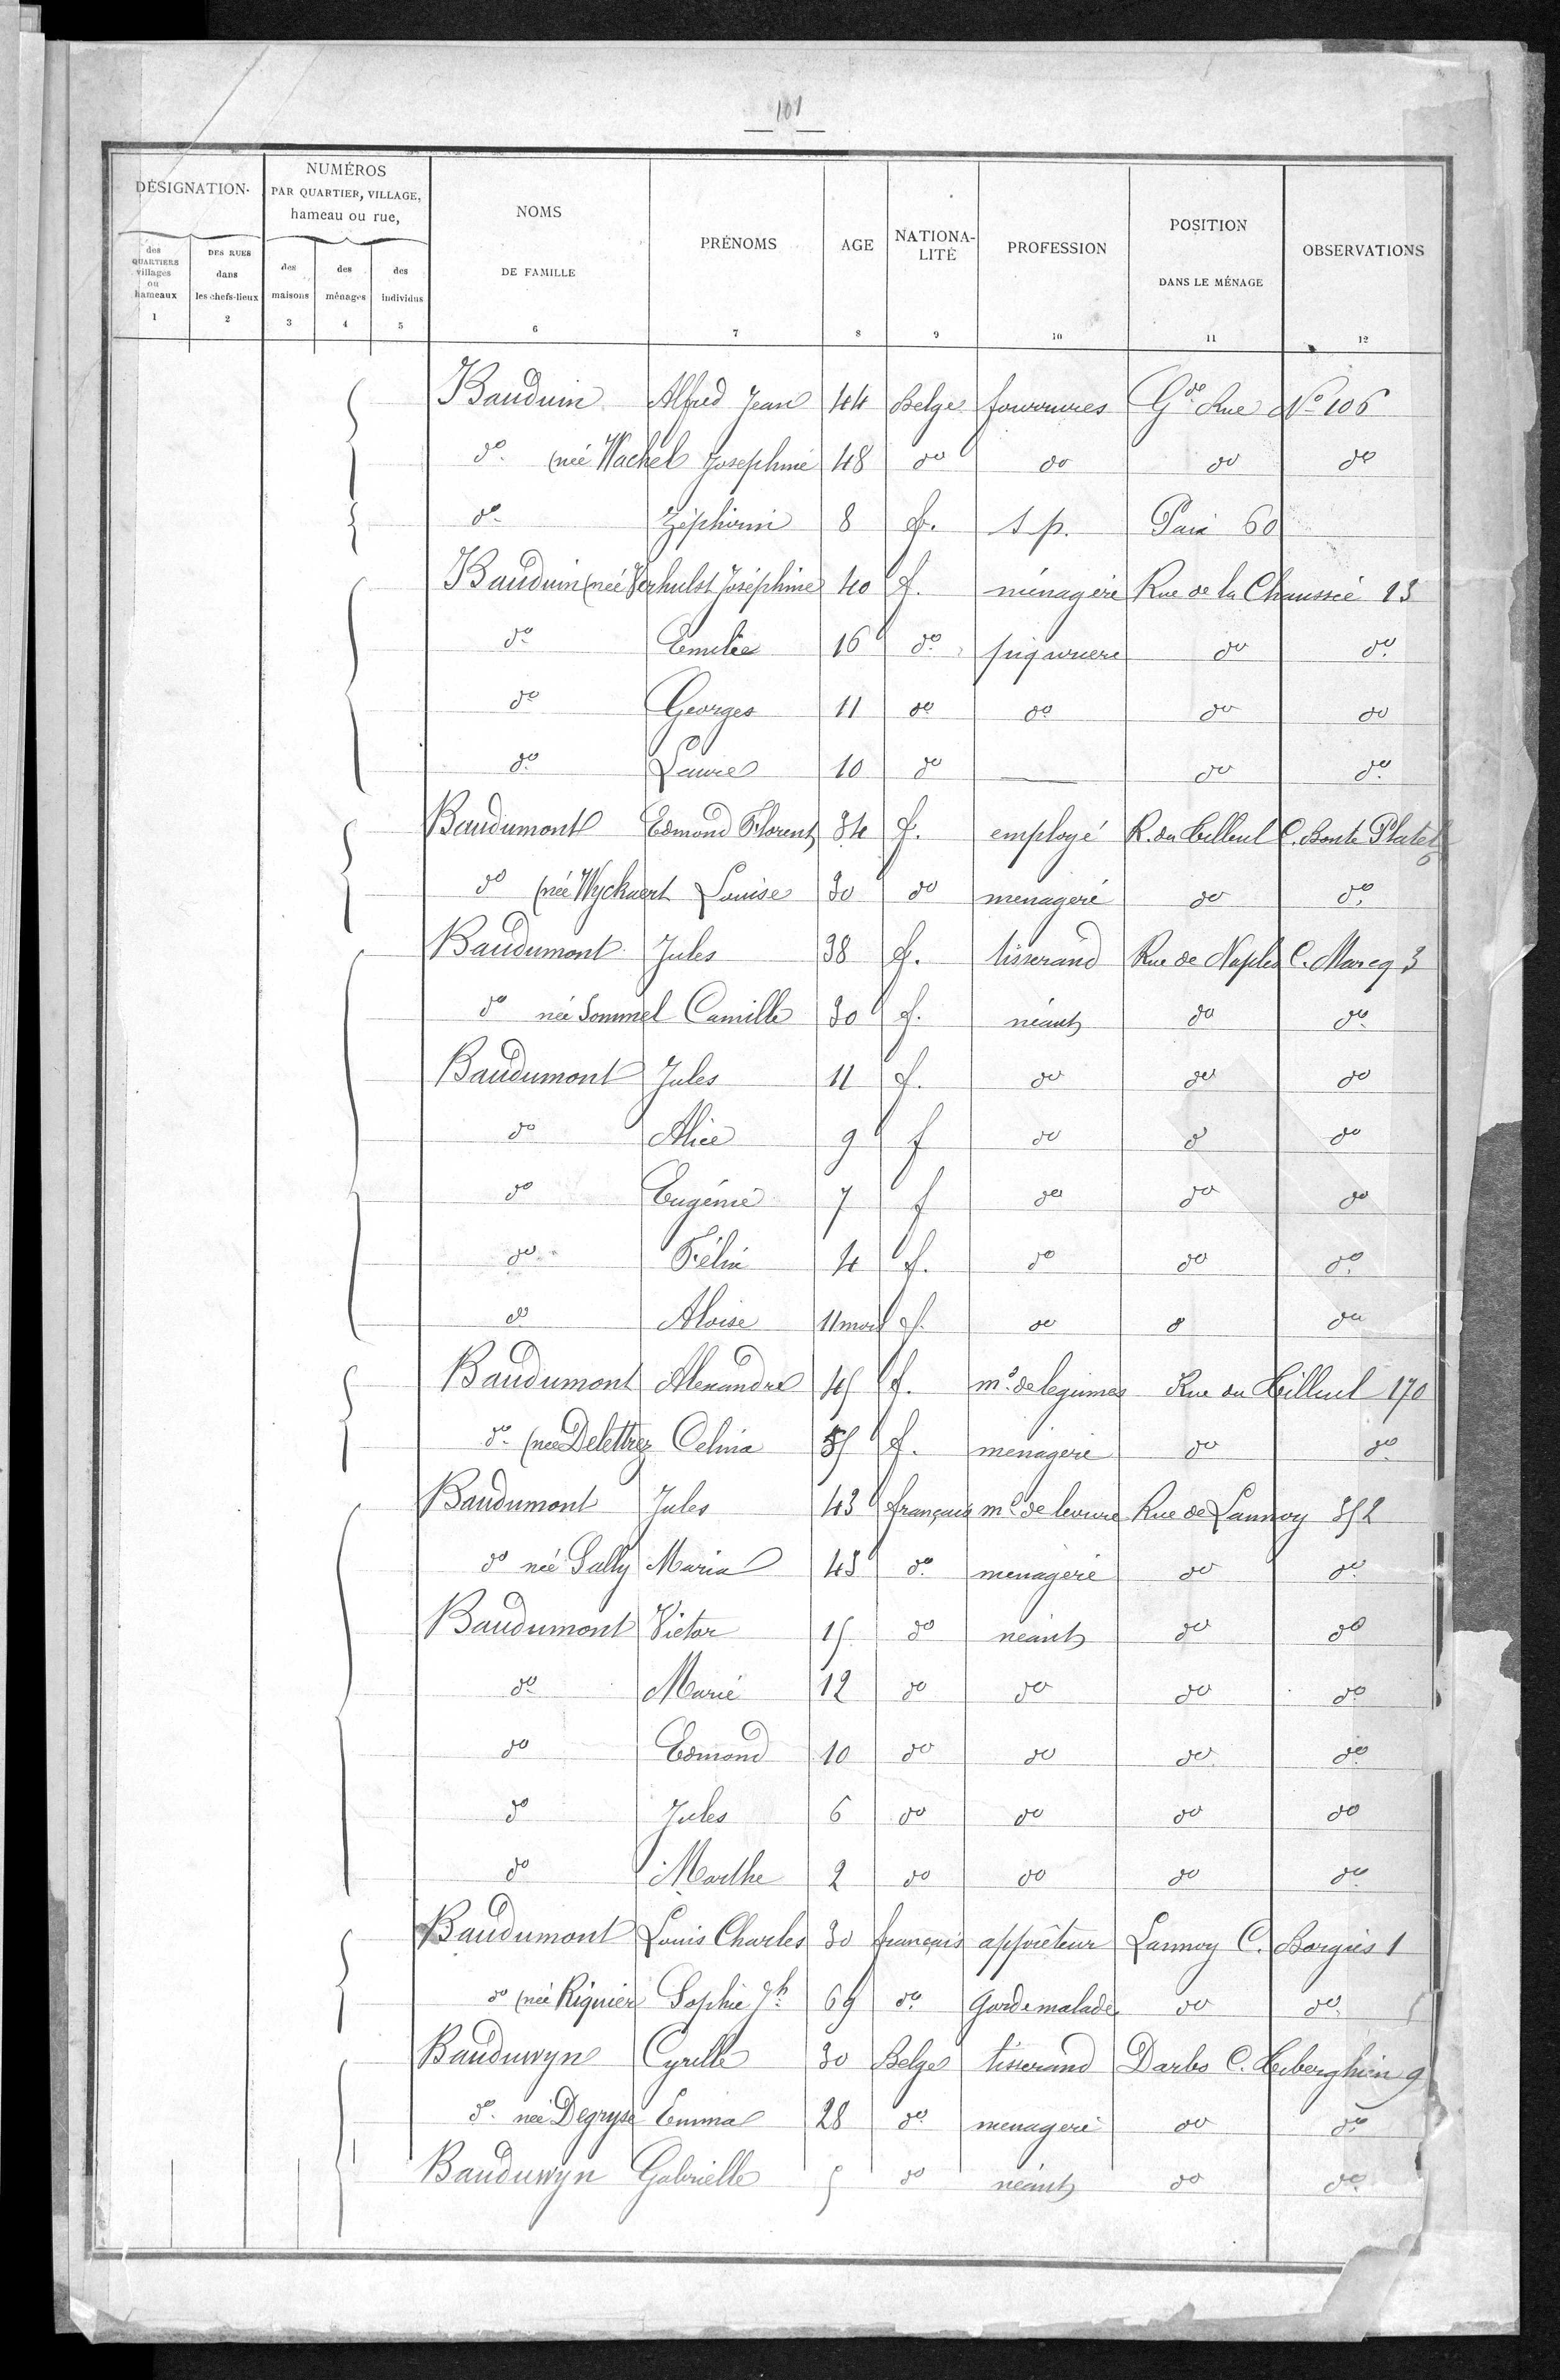 101
DÉSIGNATION
NUMÉROS PAR QUARTIER, VILLAGE, hameau ou rue,
des QUARTIERS villages ou hameaux 1
DES RUES dans les chefs-lieux 2
des maisons 3
des ménages 4
des individus 5
NOMS DE FAMILLE 6
PRÉNOMS 7
AGE 8
NATIONALITÉ 9
PROFESSION 10
POSITION DANS LE MÉNAGE 11
OBSERVATIONS 12
Bauduin Alfred Jean 44 Belge Gde Rue No 106
do (née Wachel Josephine 48 do do do do
do Zéphirin 8 f. s p. Paix 60
Bauduin (née Verhulst Joséphine 40 f. ménagère Rue de la Chaussée 13
do Emilie 16 do do do
do Georges 11 do do do do
do Laure 10 do — do do
Baudumont Edmond Florent 34 f. employé R. du Tilleul C. Bonte Platel 6
do (née Wyckaert Louise 30 do menagère do do
Baudumont Jules 38 f. tisserand Rue de Naples C. Marcq 3
do née Sommel Camille 30 f. néant do do
Baudumont Jules 11 f. do do do
do Alice 9 f do do do
do Eugénie 7 f do do do
do Félix 4 f. do do do
do Aloise 11 mois f. do do do
Baudumont Alexandre 45 f. md de legumes Rue du Tilleul 170
do (née Delettrez Celina f. menagère do do
Baudumont Jules 43 français md de levure Rue de Lannoy 352
do née Sally Maria 43 do menagère do do
Baudumont Victor 15 do néant do do
do Marie 12 do do do do
do Edmond 10 do do do do
do Jules 6 do do do do
do Marthe 2 do do do do
Baudumont Louis Charles 30 français apprêteur Lannoy C. Borgies 1
do (née Riquier Sophie Jh 69 do Garde malade do do
Bauduwyn Cyrille 30 Belge tisserand Darbo C. Tiberghien 9
do née Degryse Emma 28 do menagère do do
Bauduwyn Gabrielle 5 do néant do do